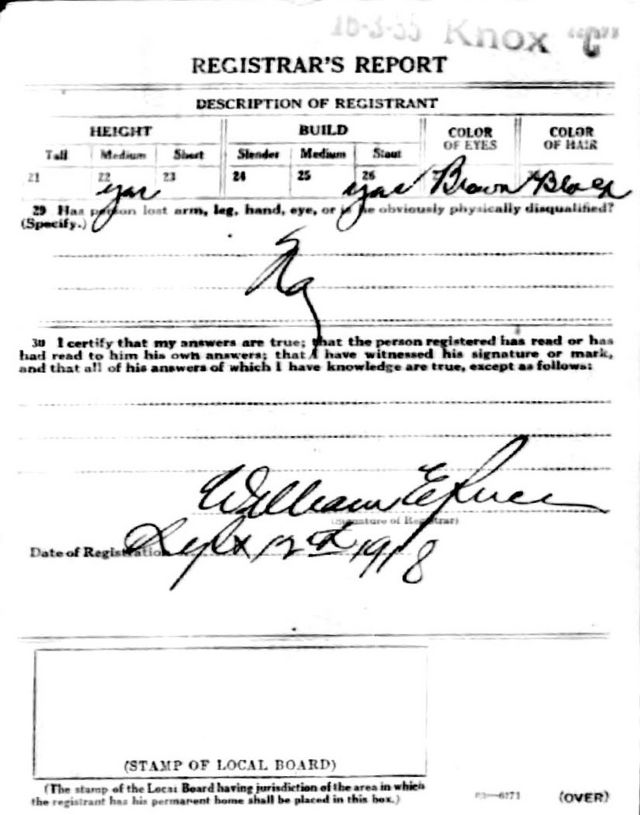 16-3-35 Knox "C"
REGISTRAR'S REPORT
DESCRIPTION OF REGISTRANT
HEIGHT BUILD COLOR OF EYES COLOR OF HAIR
Tall Medium Short Slender Medium Stout
21 22 yes 23 24 25 26 yes Brown Black
29 Has person lost arm, leg, hand, eye, or is he obviously physically disqualified?
(Specify.)
No
30 I certify that my answers are true; that the person registered has read or has
had read to him his own answers; that I have witnessed his signature or mark,
and that all of his answers of which I have knowledge are true, except as follows:
William E
(Signature of Registrar)
Date of Registration Sept 12th 1918
(STAMP OF LOCAL BOARD)
(The stamp of the Local Board having jurisdiction of the area in which
the registrant has his permanent home shall be placed in this box.)
03—6171 (OVER)